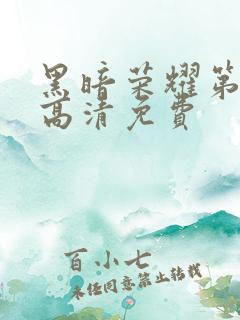 黑暗荣耀第
高清免费
百小七
未经同意禁止转载